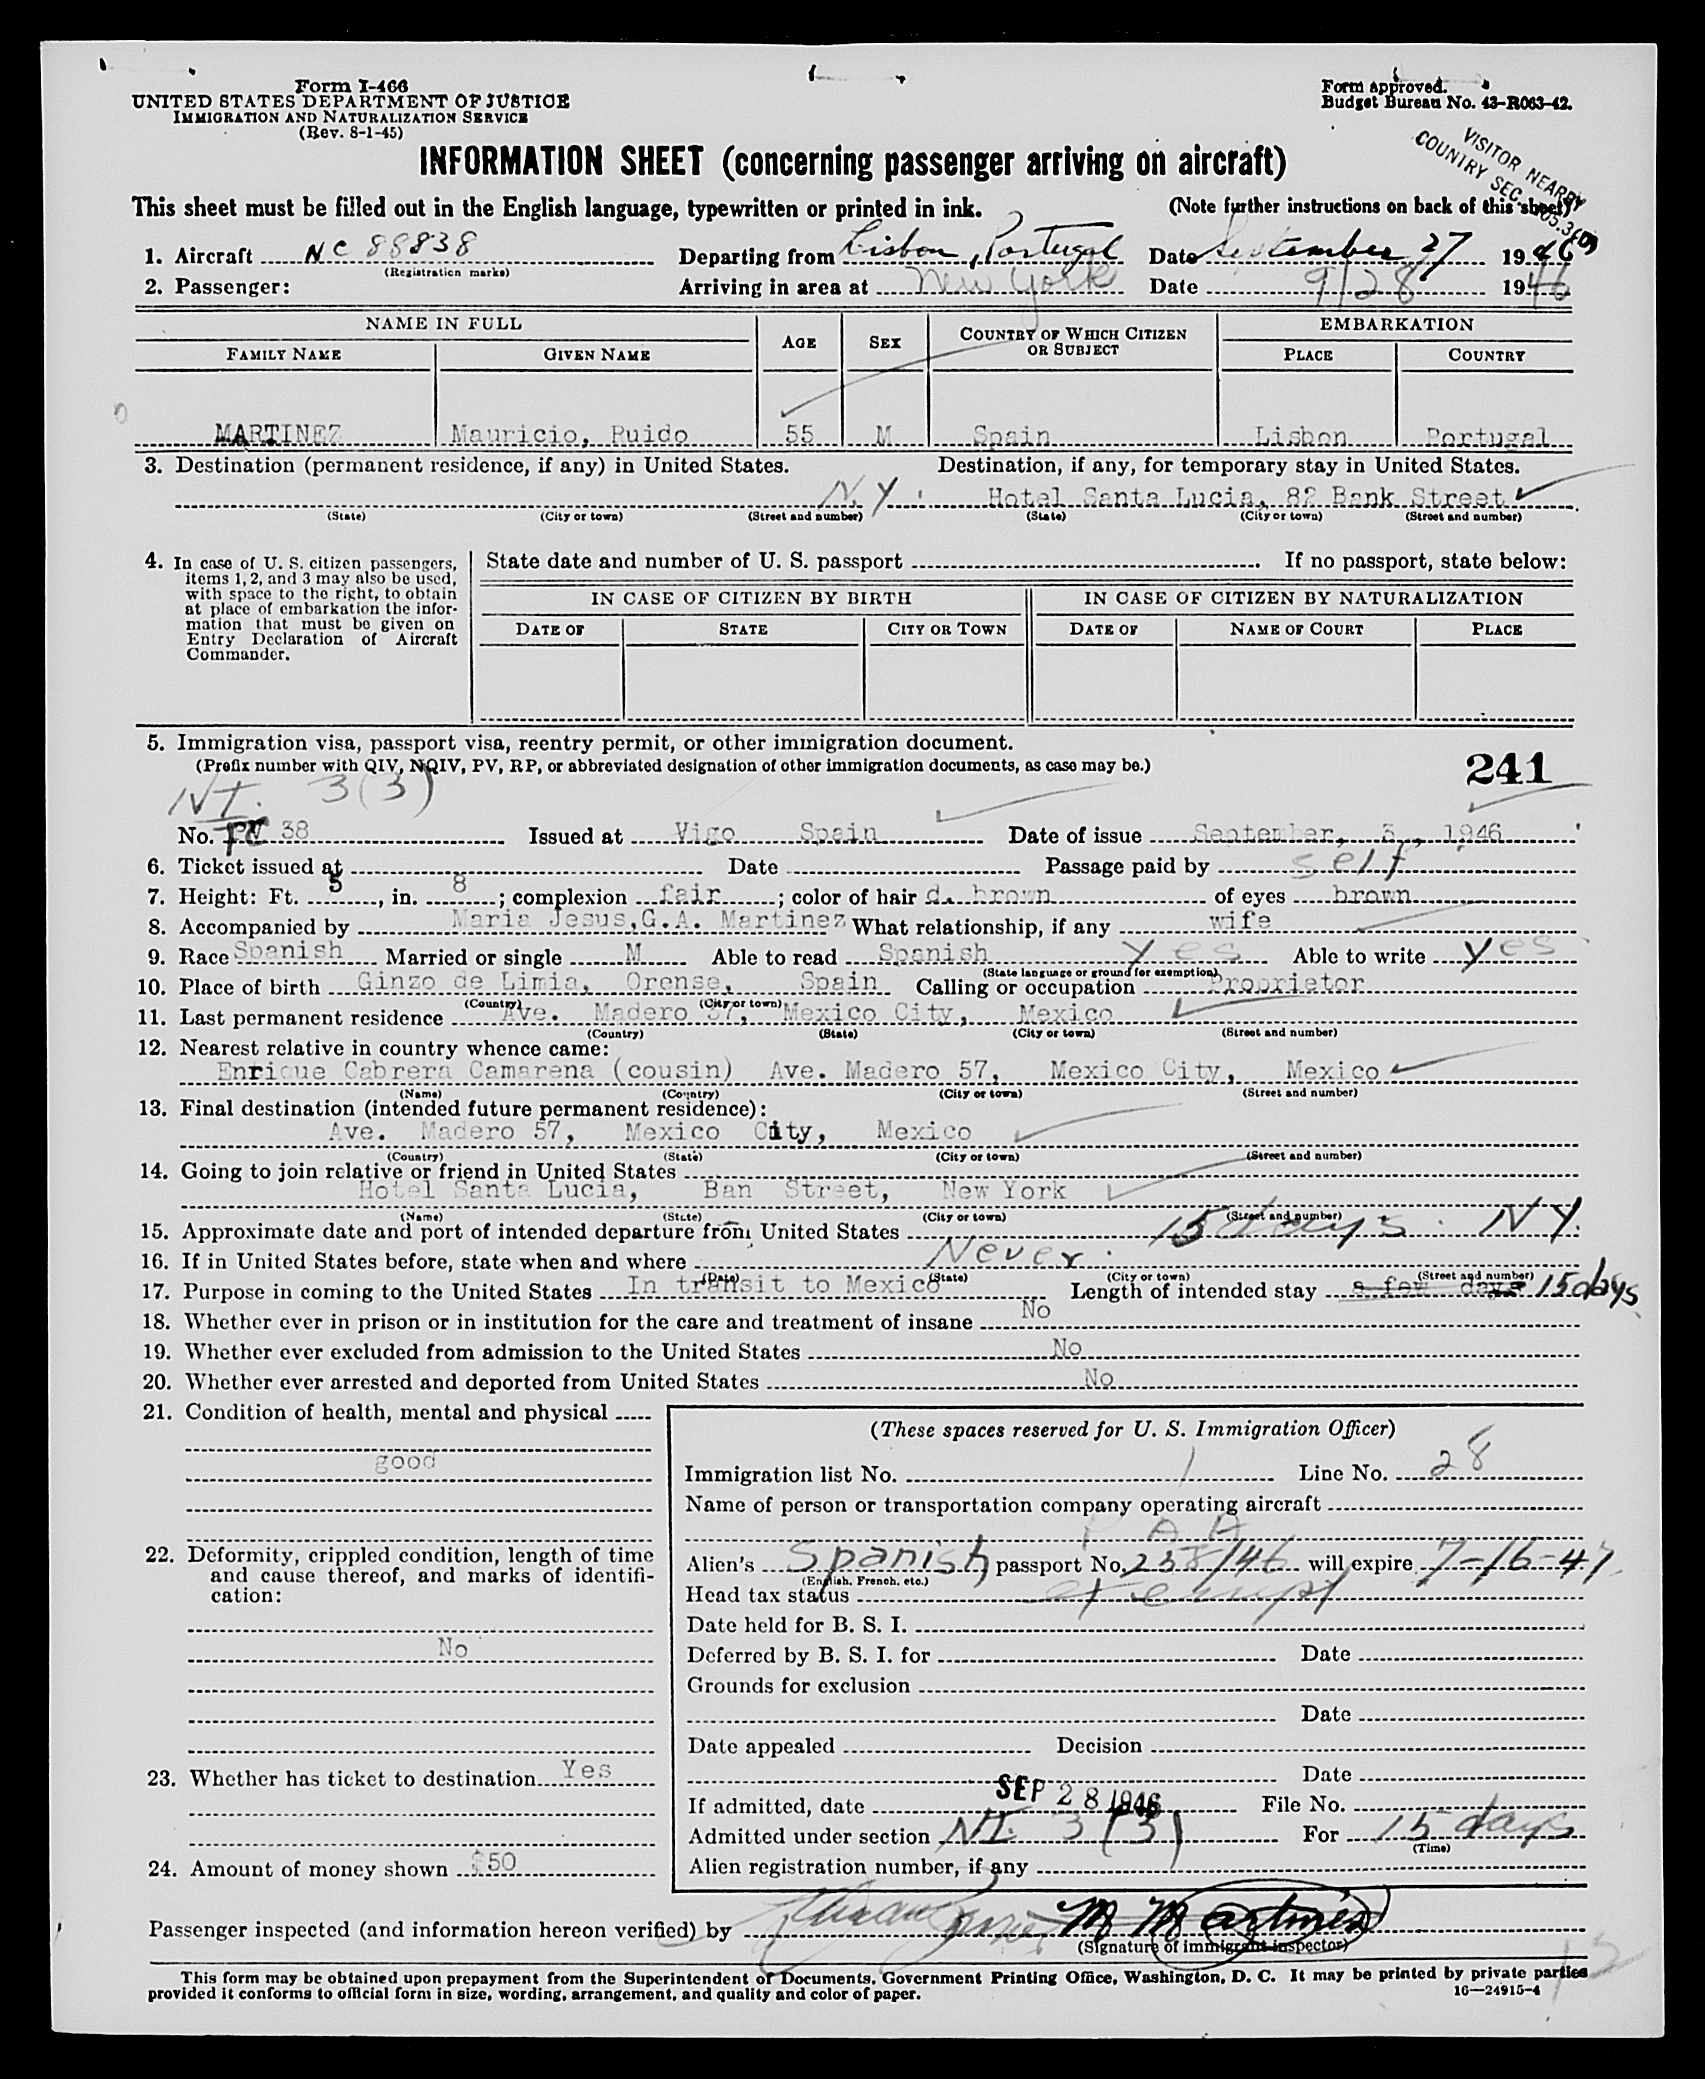 Form I-466
UNITED STATES DEPARTMENT OF JUSTICE
IMMIGRATION AND NATURALIZATION SERVICE
(Rev. 8-1-45)
Form approved.
Budget Bureau No. 43-R063-42.
VISITOR NEARBY
COUNTRY SEC.
INFORMATION SHEET (concerning passenger arriving on aircraft)
This sheet must be filled out in the English language, typewritten or printed in ink. (Note further instructions on back of this sheet)
1. Aircraft NC 88838 Departing from Lisbon, Portugal Date September 27 1946
(Registration marks)
2. Passenger: Arriving in area at New York Date 9/28 1946
NAME IN FULL AGE SEX COUNTRY OF WHICH CITIZEN OR SUBJECT EMBARKATION
FAMILY NAME GIVEN NAME PLACE COUNTRY
MARTINEZ Mauricio, Puido 55 M Spain Lisbon Portugal
3. Destination (permanent residence, if any) in United States. Destination, if any, for temporary stay in United States.
N.Y. Hotel Santa Lucia, 82 Bank Street
(State) (City or town) (Street and number) (State) (City or town) (Street and number)
4. In case of U. S. citizen passengers, items 1, 2, and 3 may also be used, with space to the right, to obtain at place of embarkation the information that must be given on Entry Declaration of Aircraft Commander.
State date and number of U. S. passport If no passport, state below:
IN CASE OF CITIZEN BY BIRTH IN CASE OF CITIZEN BY NATURALIZATION
DATE OF STATE CITY OR TOWN DATE OF NAME OF COURT PLACE
5. Immigration visa, passport visa, reentry permit, or other immigration document.
(Prefix number with QIV, NQIV, PV, RP, or abbreviated designation of other immigration documents, as case may be.)
241
NI. 3(3)
No. PV 38 Issued at Vigo Spain Date of issue September, 3, 1946
6. Ticket issued at Date Passage paid by self
7. Height: Ft. 5, in. 8; complexion fair; color of hair d. brown of eyes brown
8. Accompanied by Maria Jesus,G.A. Martinez What relationship, if any wife
9. Race Spanish Married or single M Able to read Spanish yes Able to write yes
(State language or ground for exemption)
10. Place of birth Ginzo de Limia, Orense, Spain Calling or occupation Proprietor
(Country) (City or town)
11. Last permanent residence Ave. Madero 57, Mexico City, Mexico
(Country) (State) (City or town) (Street and number)
12. Nearest relative in country whence came:
Enrique Cabrera Camarena (cousin) Ave. Madero 57, Mexico City, Mexico
(Name) (Country) (City or town) (Street and number)
13. Final destination (intended future permanent residence):
Ave. Madero 57, Mexico City, Mexico
(Country) (State) (City or town) (Street and number)
14. Going to join relative or friend in United States
Hotel Santa Lucia, Ban Street, New York
(Name) (State) (City or town) (Street and number)
15. Approximate date and port of intended departure from United States 15 days. NY.
16. If in United States before, state when and where Never.
(Date) (State) (City or town) (Street and number)
17. Purpose in coming to the United States In transit to Mexico Length of intended stay a few days 15 days
18. Whether ever in prison or in institution for the care and treatment of insane No
19. Whether ever excluded from admission to the United States No
20. Whether ever arrested and deported from United States No
21. Condition of health, mental and physical
good
22. Deformity, crippled condition, length of time and cause thereof, and marks of identification:
No
23. Whether has ticket to destination Yes
24. Amount of money shown $50
(These spaces reserved for U. S. Immigration Officer)
Immigration list No. 1 Line No. 28
Name of person or transportation company operating aircraft
P A A
Alien's Spanish passport No. 238/46 will expire 7-16-47
(English, French, etc.)
Head tax status exempt
Date held for B. S. I.
Deferred by B. S. I. for Date
Grounds for exclusion
Date
Date appealed Decision
Date
If admitted, date SEP 28 1946 File No.
Admitted under section NI. 3(3) For 15 days
(Time)
Alien registration number, if any
Passenger inspected (and information hereon verified) by M Martinez
(Signature of immigrant inspector)
This form may be obtained upon prepayment from the Superintendent of Documents, Government Printing Office, Washington, D. C. It may be printed by private parties
provided it conforms to official form in size, wording, arrangement, and quality and color of paper.
16—24915-4